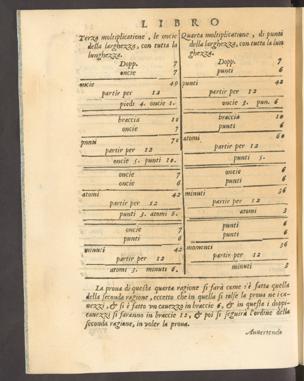 LIBRO
Terza moltiplicatione, le oncie
della larghezza, con tutta la
lunghezza.
Dopp. 7
oncie 7
oncie 49
partir per 12
piedi 4. oncie 1.
braccia 10
oncie 7
punti 70
partir per 12
oncie 5. punti 10.
oncie 7
oncie 6
atomi 42
partir per 12
punti 3. atomi 6.
oncie 7
punti 6
minuti 42
partir per 12
atomi 3. minuti 6.
Quarta moltiplicatione, di punti
della larghezza, con tutta la lun
ghezza.
Dopp. 7
punti 6
punti 42
partir per 12
oncie 3. pun. 6
braccia 10
punti 6
atomi 60
partir per 12
punti 5.
oncie 6
punti 6
minuti 36
partir per 12
atomi 3
punti 6
punti 6
momenti 36
partir per 12
minuti 3
La proua di queste quarta ragione si farà come s'è fatta quella
della seconda ragione, eccetto che in quella si tolse la proua ne i ca-
uezzi, & si è fatto vn cauezzo in braccie 6, & in questa i doppi-
cauezzi si faranno in braccie 12, & poi si seguirà l'ordine della
seconda ragione, in voler la proua.
Auuertendo